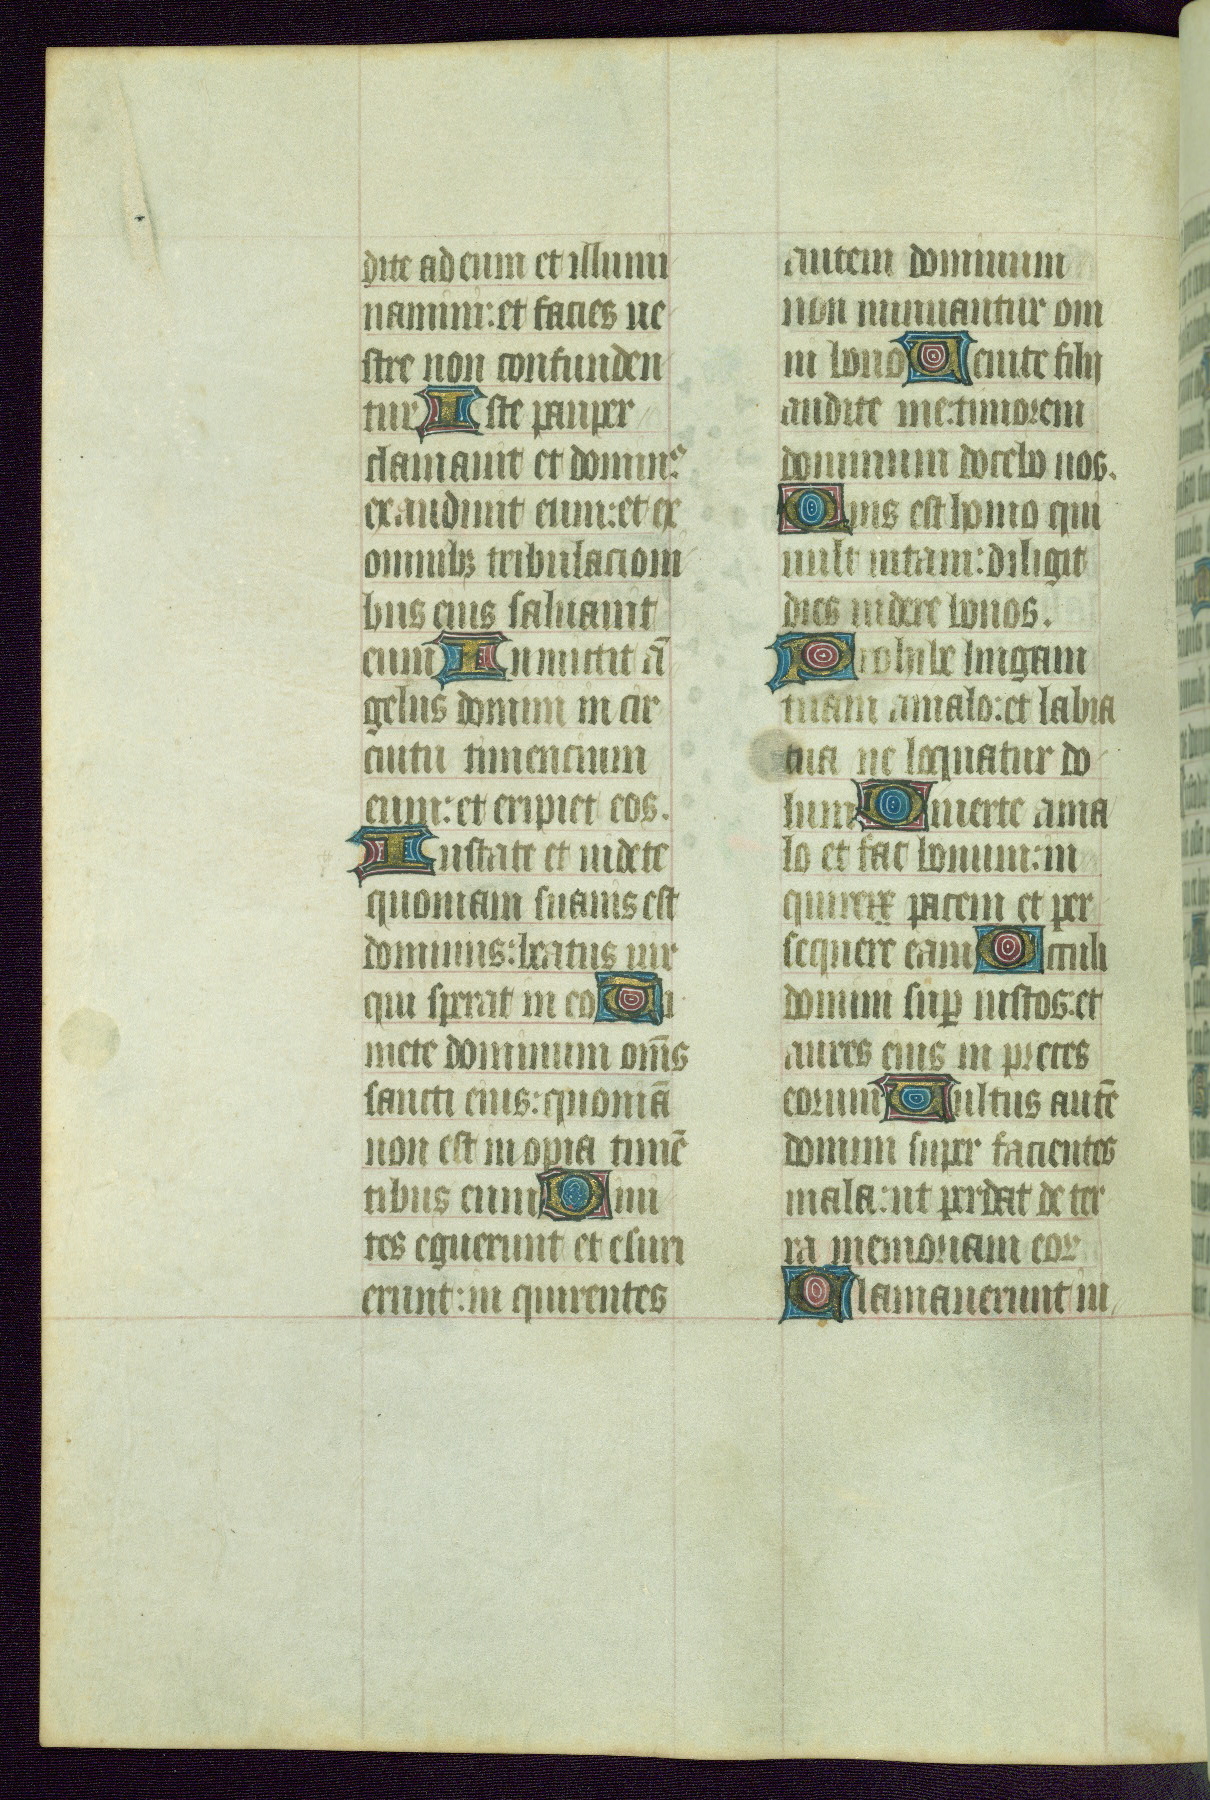 dite ad eum et illumi
namini: et facies ue
stre non confunden
tur Iste pauper
clamauit et dominus
exaudiuit eum: et ex
omnibꝫ tribulacioni
bus eius saluauit
eum Inmittit ā
gelus domini in cir
cuitu timencium
eum: et eripiet eos.
Gustate et uidete
quoniam suauis est
dominus: beatus uir
qui sperat in eo Ti
mete dominum om̄s
sancti eius: quoniā
non est inopia timē
tibus eum Diui
tes eguerunt et esuri
erunt: in quirentes
autem dominum
non minuantur om
ni bono Uenite filij
audite me: timorem
dominum docebo uos.
Quis est homo qui
uult uitam: diligit
dies uidere bonos.
Prohibe linguam
tuam amalo: et labia
tua ne loquatur do
lum Diuerte ama
lo et fac bonum: in
quire pacem et per
sequere eam Oculi
domini suꝑ iustos: et
aures eius in preces
eorum Uultus autē
domini super facientes
mala: ut perdat de ter
ra memoriam eoꝝ
Clamauerunt iu